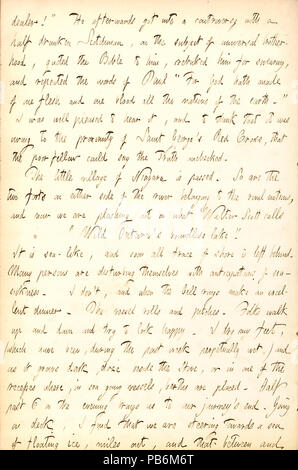 dealer!!" He afterwards got into a controversy with a
half drunken Scotchman, on the subject of universal brother-
hood, quoted the Bible to him, rebuked him for swearing,
and repeated the words of Paul "For God hath made
of one flesh and one blood all the nations of the earth."
I was well pleased to hear it, and to think that it was
owing to the proximity of Saint George's Red Cross, that
the poor fellow could say the Truth unchecked.
The little village of Niagara is passed. So are the
two forts on either side of the river belonging to the rival nations,
and now we are plashing it on what Walter Scott calls
"Wild Ontario's boundless lake!"
It is sea-like, and soon all trace of shore is left behind.
Many persons are disturbing themselves with anticipations of sea-
sickness. I don't, and when the bell rings make an excel-
lent dinner. The vessel rolls and pitches. Folks walk
up and down and try to look happy. I dry my feet,
which have been, during the past week perpetually wet, and
as it grows dark doze beside the stove, or in one of the
recesses where, in sea going vessels, berths are placed. Half
past 6 in the evening brings us to our journey's end. Going
on deck, I find that we are steering towards a sea
of floating ice, miles out, and that between and
alamy
PB6M6T